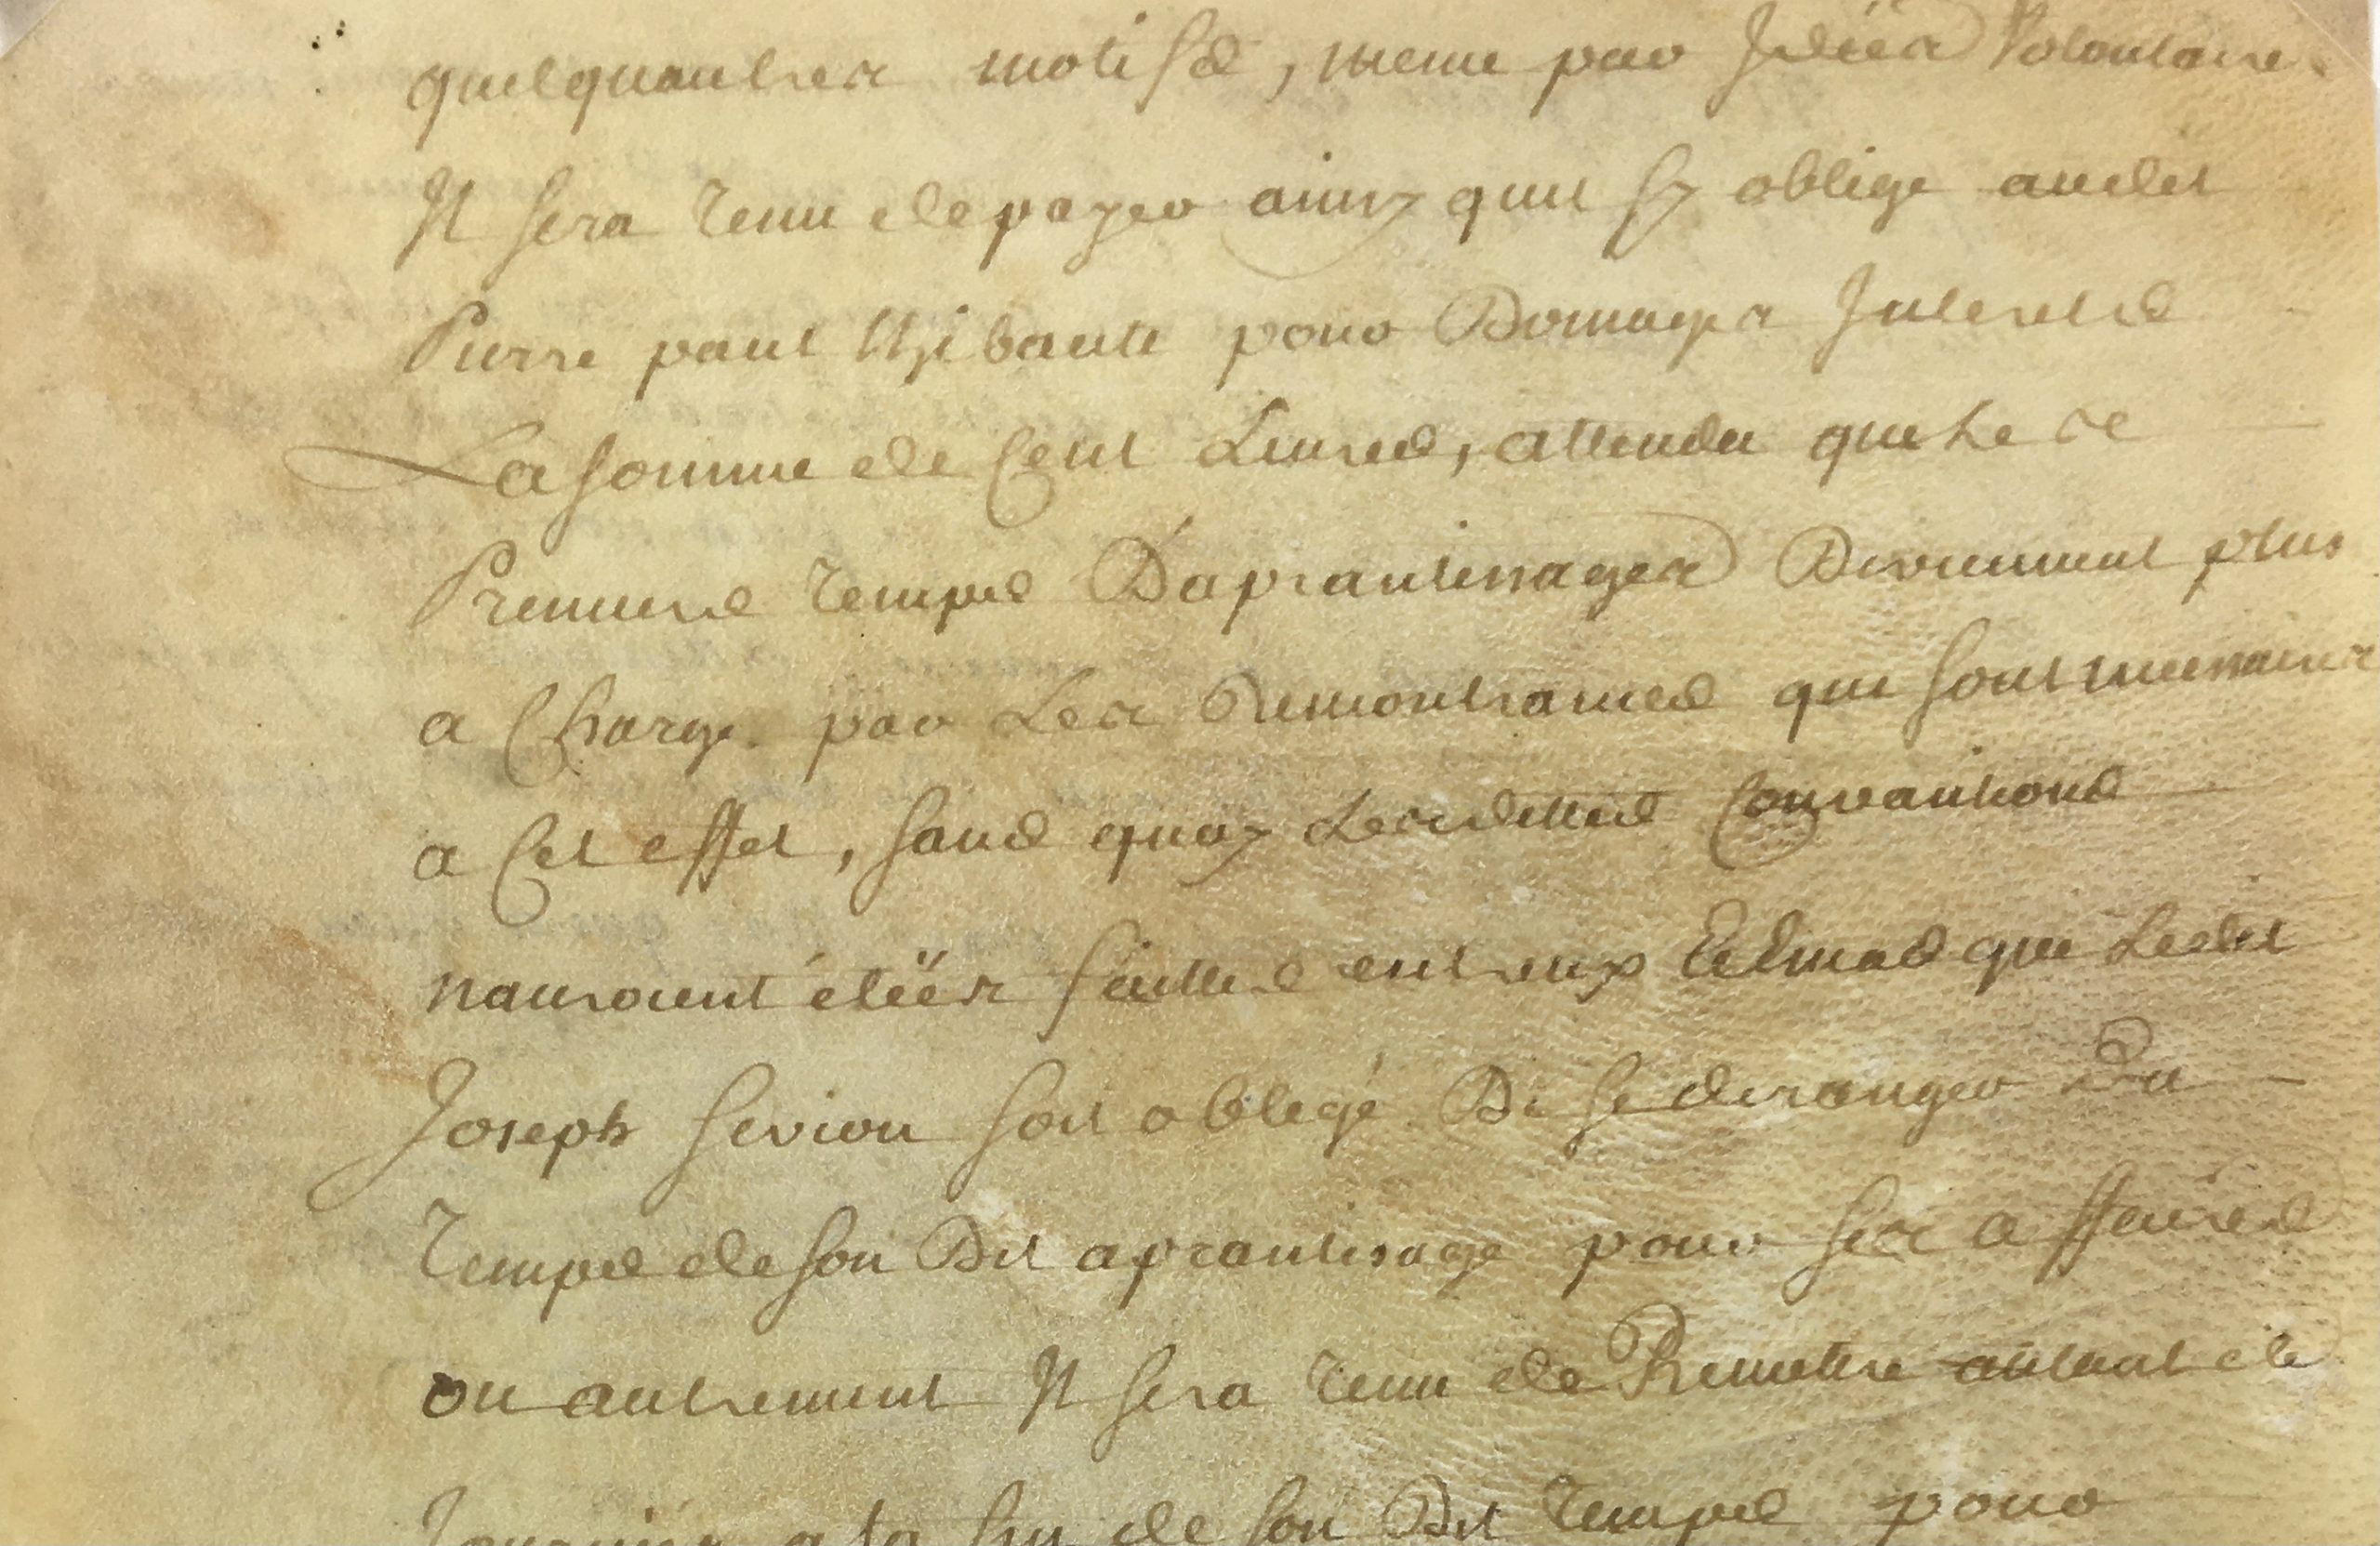 quelquautres motifs, meme par Idéés Volontaire.
Il sera tenu de payer ainsy quil sy oblige audit
Pierre paul thibault pour Domages Interets
La somme de Cent Livres, attendu que Le
Premiers temps D'aprantissages Deviennent plus
a Charge par Les Remontrances qui sont necessaires
a Cet effet, sans quoy Lesdittes Convantions
nauroient étéés faittes entreux que Ledit
Joseph Sevion soit obligé De se deranger Du
temps de son Dit aprantisage pour ses affaires
ou autrement Il sera tenu de Remettre autant de
Journées a la fin de son Dit temps pour